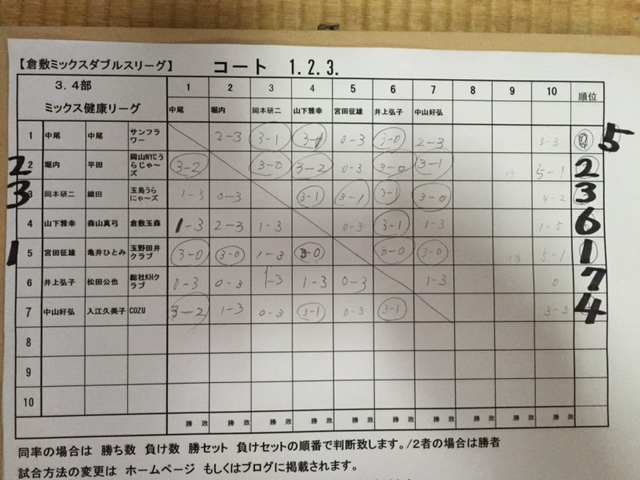 【倉敷ミックスダブルスリーグ】 コート 1.2.3.
3.4部 1 2 3 4 5 6 7 8 9 10 順位
ミックス健康リーグ 中尾 堀内 岡本研二 山下雅幸 宮田征雄 井上弘子 中山好弘
1 中尾 中尾 サンフラワー 2-3 3-1 3-1 0-3 3-0 2-3 3-3 5
2 2 堀内 平田 岡山NYCうらじゃ～ズ 3-2 3-0 3-2 0-3 3-0 3-1 5-1 2
3 3 岡本研二 織田 玉島うらにゃ～ズ 1-3 0-3 3-1 3-1 3-1 3-0 4-2 3
4 山下雅幸 森山真弓 倉敷玉森 1-3 2-3 1-3 0-3 3-1 1-3 1-5 6
1 5 宮田征雄 亀井ひとみ 玉野田井クラブ 3-0 3-0 1-3 3-0 3-0 3-0 5-1 1
6 井上弘子 松田公也 総社KHクラブ 0-3 0-3 1-3 1-3 0-3 1-3 0 7
7 中山好弘 入江久美子 COZU 3-2 1-3 0-3 3-1 0-3 3-1 3-3 4
8
9
10
勝 敗 勝 敗 勝 敗 勝 敗 勝 敗 勝 敗 勝 敗 勝 敗 勝 敗 勝 敗
同率の場合は 勝ち数 負け数 勝セット 負けセットの順番で判断致します。/2者の場合は勝者
試合方法の変更は ホームページ もしくはブログに掲載されます。